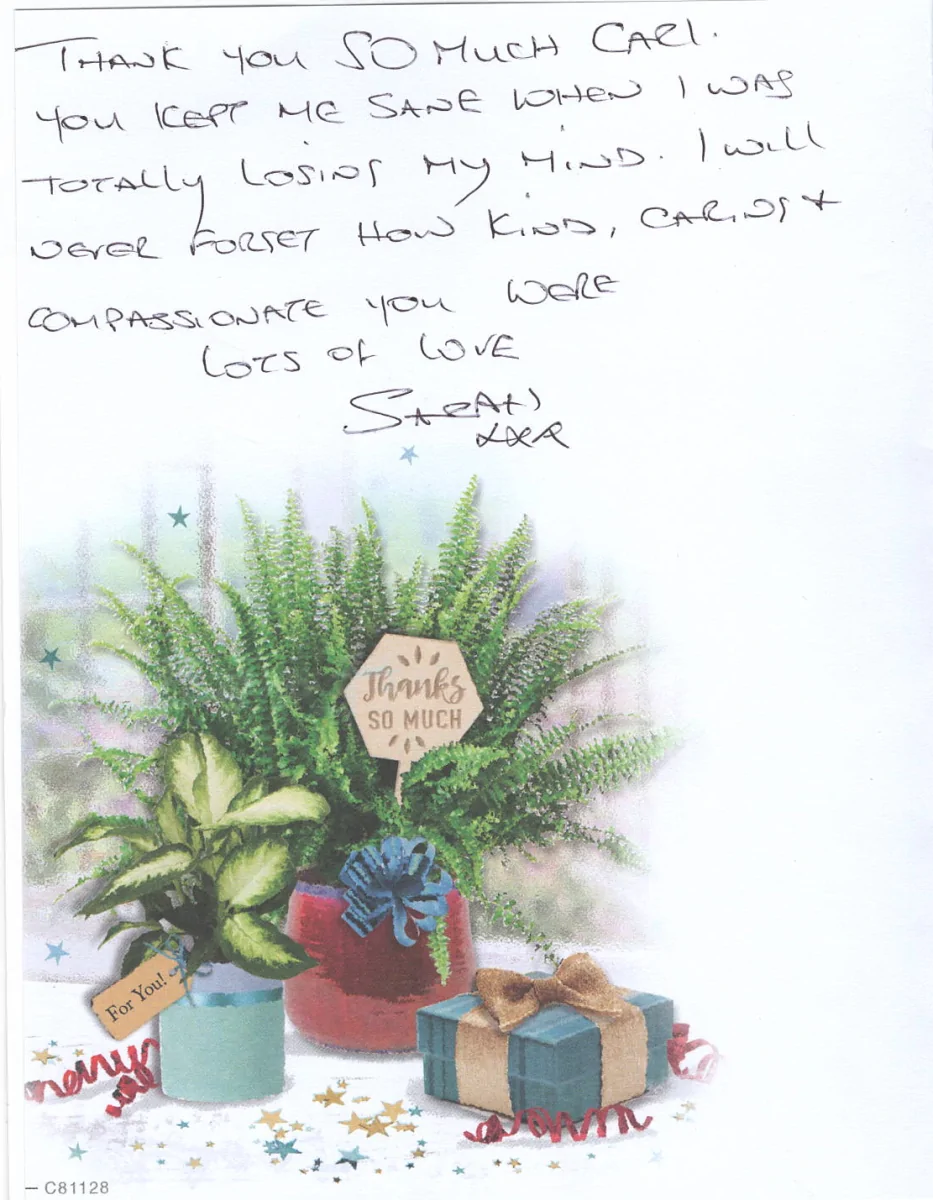 THANK YOU SO MUCH CARL.
YOU KEPT ME SANE WHEN I WAS
TOTALLY LOSING MY MIND. I WILL
NEVER FORGET HOW KIND, CARING +
COMPASSIONATE YOU WERE
LOTS OF LOVE
SARAH
xxx
Thanks
SO MUCH
For You!
– C81128